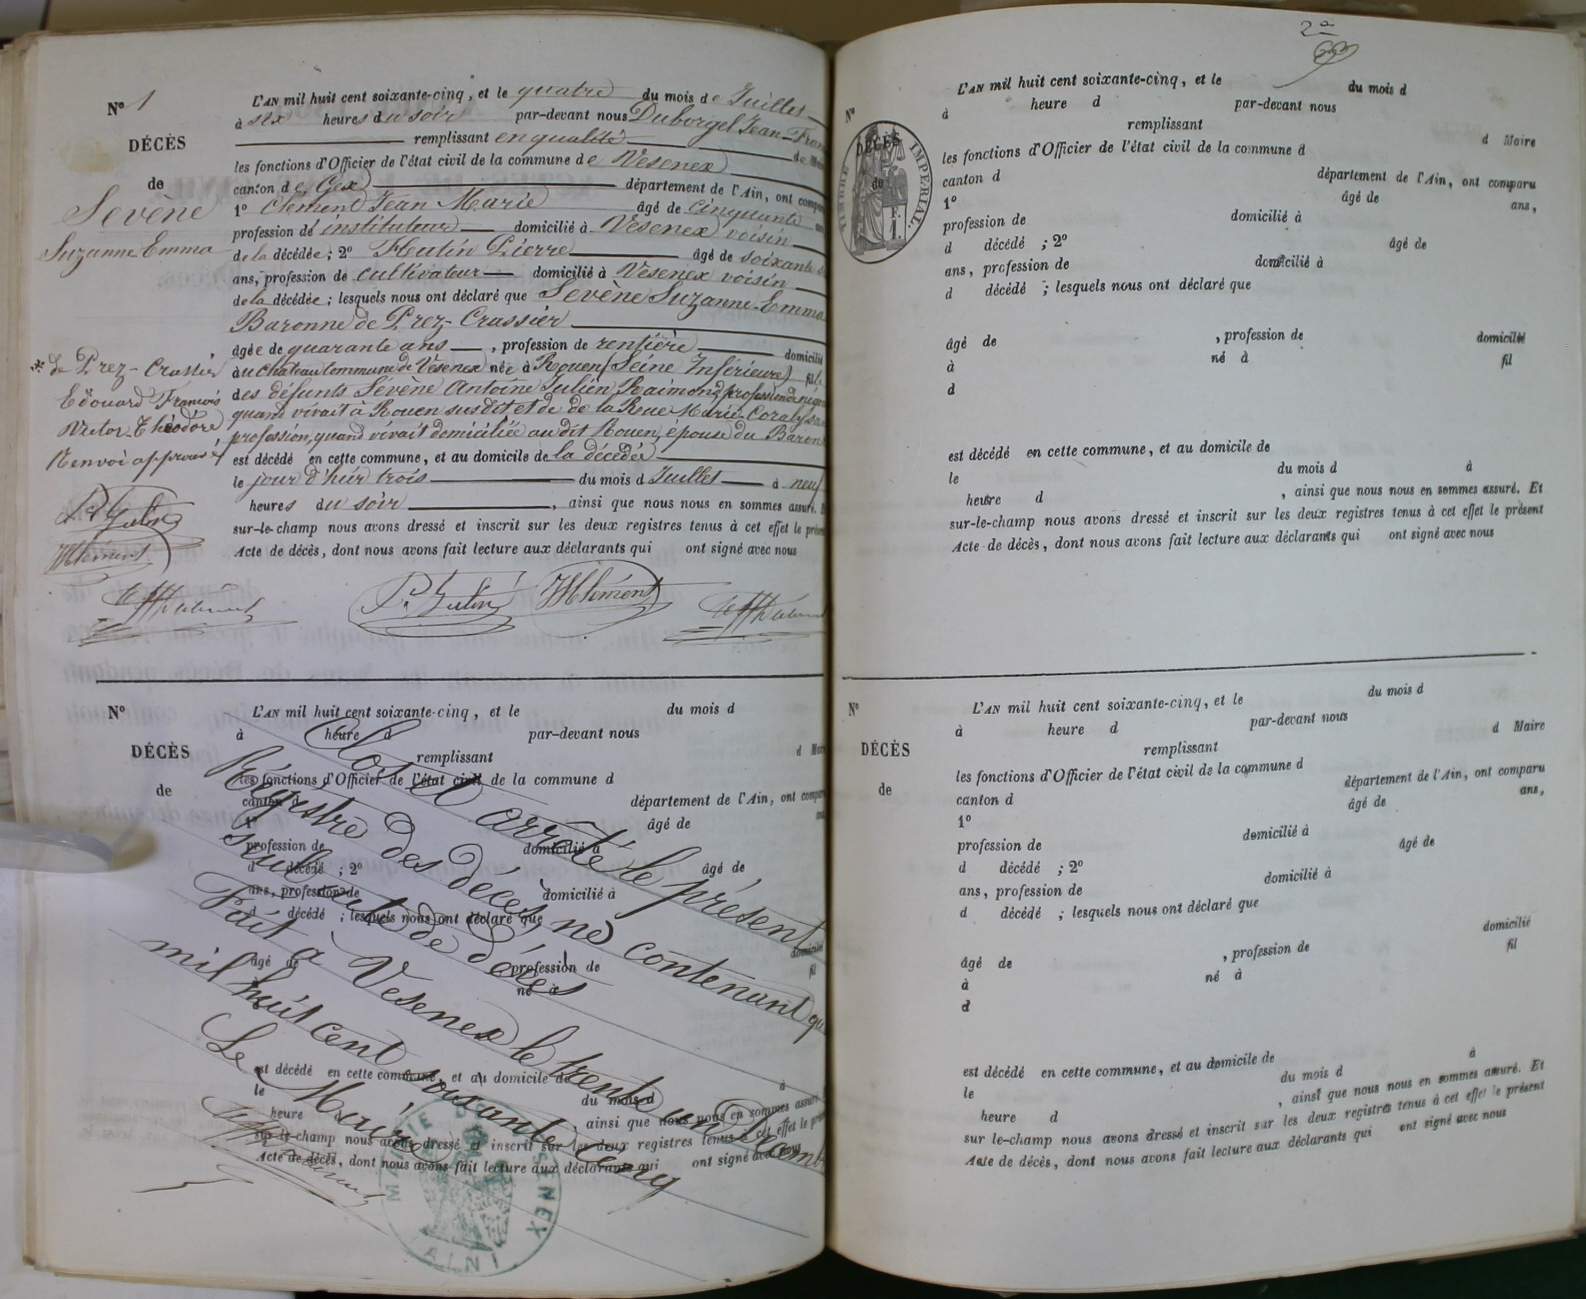 Nº 1
DÉCÈS
de
Sevène
Suzanne Emma
L'AN mil huit cent soixante-cinq, et le quatre du mois de Juillet
à six heures du soir par-devant nous Duborgel Jean-Fran
remplissant en qualité de
les fonctions d'Officier de l'état civil de la commune de Vesenex
canton de Gex département de l'Ain, ont compa
1º Clément Jean Marie âgé de cinquante
profession de instituteur domicilié à Vesenex voisin
de la décédée ; 2º Hutin Pierre âgé de soixante
ans, profession de cultivateur domicilié à Vesenex voisin
de la décédée ; lesquels nous ont déclaré que Sevène Suzanne-Emma
Baronne de Prez-Crassier
âgée de quarante ans, profession de rentière domicilié
au chateau Commune de Vesenex née à Rouen (Seine Inférieure) fille
des défunts Sévène Antoine Julien Raimond profession de
quand vivait à Rouen susdit et de de la Roue Marie-Coraly sa
profession, quand vivait domiciliée au dit Rouen, épouse du Baron
est décédé en cette commune, et au domicile de la décédée
le jour d'hier trois du mois d Juillet à neuf
heures du soir, ainsi que nous nous en sommes assuré. E
sur-le-champ nous avons dressé et inscrit sur les deux registres tenus à cet effet le présen
Acte de décès, dont nous avons fait lecture aux déclarants qui ont signé avec nous
* de Prez-Crassier
Edouard François
Victor Théodore
Renvoi approuvé
P. Hutin
JMClément
P. Hutin JMClément
Nº
DÉCÈS
de
L'AN mil huit cent soixante-cinq, et le du mois d
à heure d par-devant nous
remplissant d Mair
les fonctions d'Officier de l'état civil de la commune d
canton d département de l'Ain, ont compar
1º âgé de
profession de domicilié à
d décédé ; 2º âgé de
ans, profession de domicilié à
d décédé ; lesquels nous ont déclaré que
domicilié
âgé de profession de fil
né à
est décédé en cette commune, et au domicile de
le du mois d à
heure , ainsi que nous nous en sommes assuré
sur-le-champ nous avons dressé et inscrit sur les deux registres tenus à cet effet le pré
Acte de décès, dont nous avons fait lecture aux déclarants qui ont signé avec nous
Clos et arrêté le présent
Régistre des décès, ne contenant qu
seul acte de décès
Fait à Vesenex le trente un Décemb
mil huit cent soixante cinq
Le Maire
MAIRIE DE VESENEX
AIN
2e
Nº
DÉCÈS
de
TIMBRE IMPÉRIAL
L'AN mil huit cent soixante-cinq, et le du mois d
à heure d par-devant nous
remplissant d Maire
les fonctions d'Officier de l'état civil de la commune d
canton d département de l'Ain, ont comparu
1º âgé de ans,
profession de domicilié à
d décédé ; 2º âgé de
ans, profession de domicilié à
d décédé ; lesquels nous ont déclaré que
âgé de , profession de domicilié
à né à fil
d
est décédé en cette commune, et au domicile de
le du mois d à
heure d , ainsi que nous nous en sommes assuré. Et
sur-le-champ nous avons dressé et inscrit sur les deux registres tenus à cet effet le présent
Acte de décès, dont nous avons fait lecture aux déclarants qui ont signé avec nous
Nº
DÉCÈS
de
L'AN mil huit cent soixante-cinq, et le du mois d
à heure d par-devant nous
remplissant d Maire
les fonctions d'Officier de l'état civil de la commune d
canton d département de l'Ain, ont comparu
1º âgé de ans,
profession de domicilié à
d décédé ; 2º âgé de
ans, profession de domicilié à
d décédé ; lesquels nous ont déclaré que
domicilié
âgé de , profession de fil
à né à
d
est décédé en cette commune, et au domicile de à
le du mois d
heure d , ainsi que nous nous en sommes assuré. Et
sur le-champ nous avons dressé et inscrit sur les deux registres tenus à cet effet le présent
Acte de décès, dont nous avons fait lecture aux déclarants qui ont signé avec nous